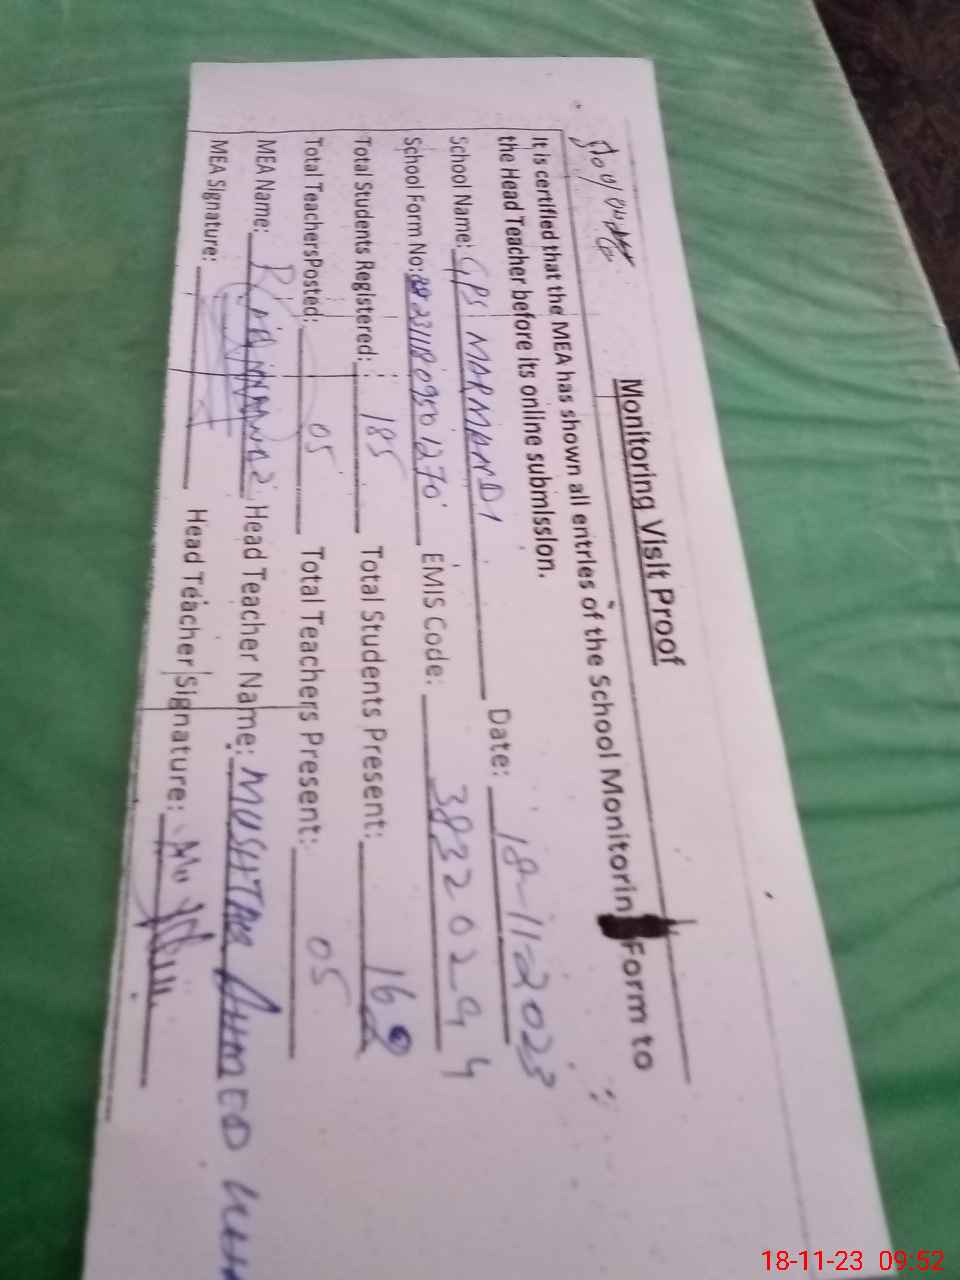 Monitoring Visit Proof
It is certified that the MEA has shown all entries of the School Monitorin Form to
the Head Teacher before its online submission.
School Name: GPS MARMANDI Date: 18-11-2023
School Form No: 23111809501270 EMIS Code: 38320294
Total Students Registered: 185 Total Students Present: 162
Total TeachersPosted: 05 Total Teachers Present: 05
MEA Name: Head Teacher Name: MUSHTAQ AHMED
MEA Signature: Head Teacher Signature:
18-11-23 09:52